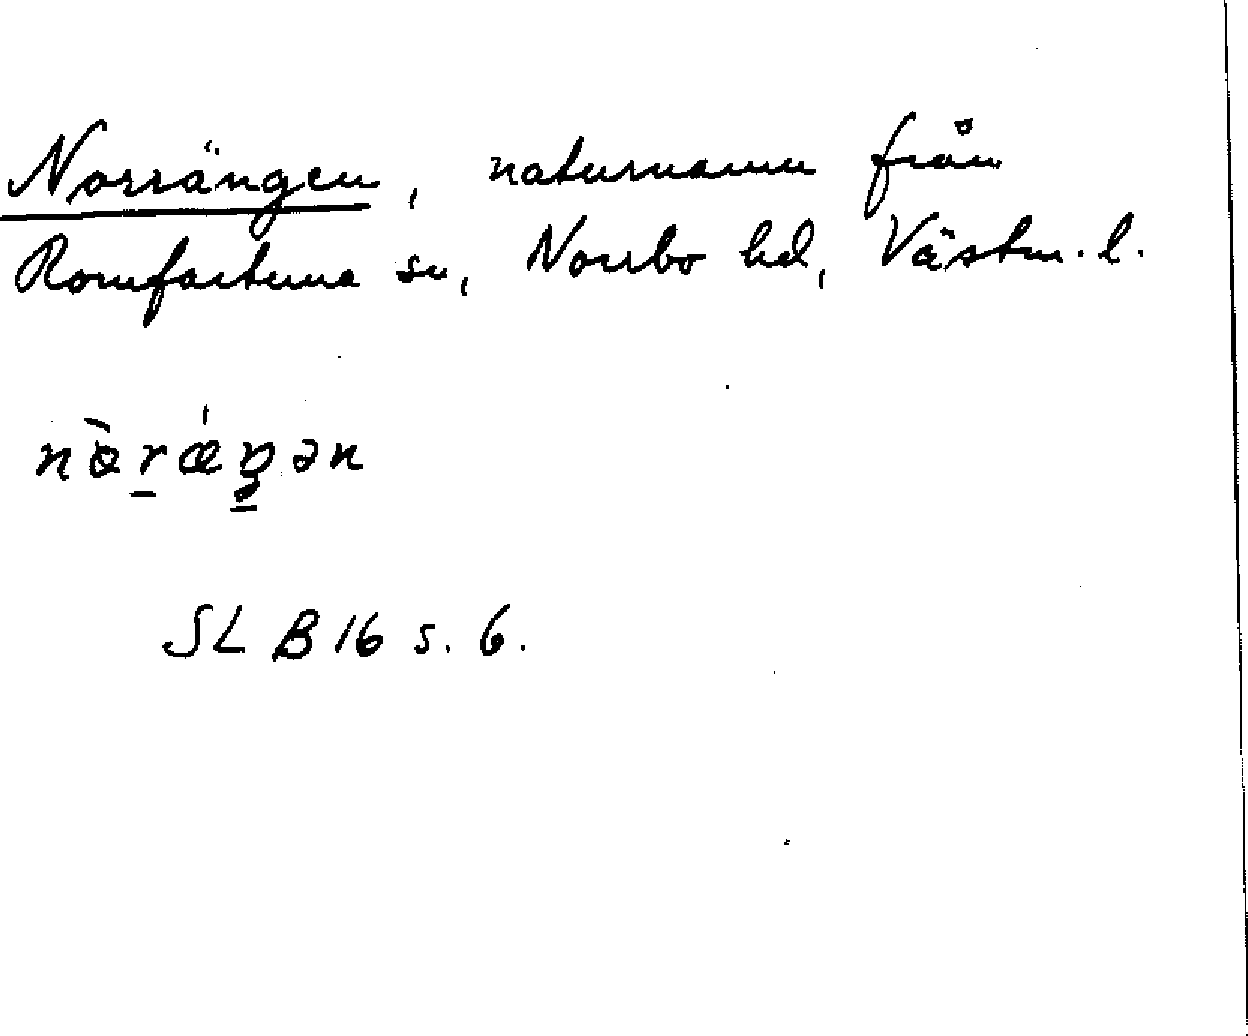 Norrängen, naturnamn från
Romfartuna sn, Norrbo hd, Västm. l.
nòr̲ǽŋ̲ən
SL B 16 s. 6.